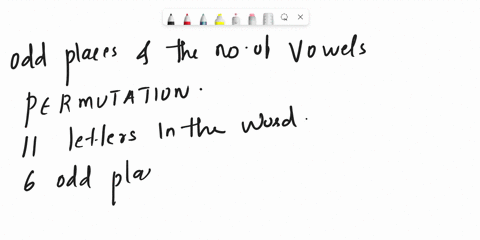 odd places & the no. of Vowels
PERMUTATION.
11 letters in the word.
6 odd pla